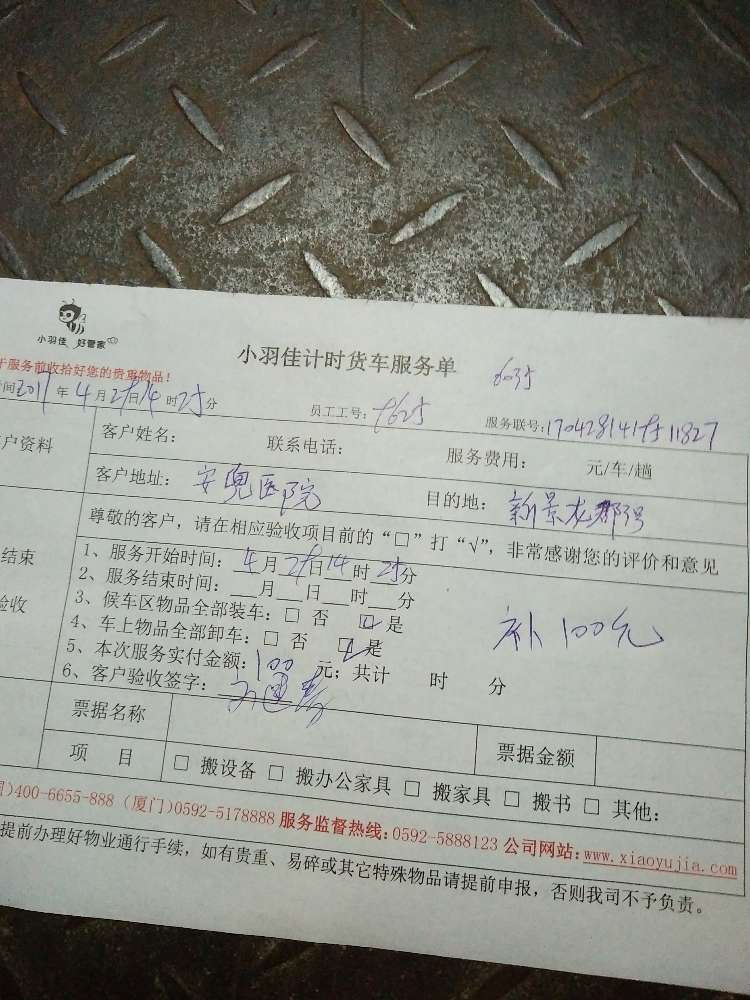 小羽佳 好管家
小羽佳计时货车服务单
于服务前收拾好您的贵重物品！
间2017年4月28日14时25分 员工工号： 服务联号：
户资料
客户姓名： 联系电话： 服务费用： 元/车/趟
客户地址：安兜医院 目的地：新景龙郡
尊敬的客户，请在相应验收项目前的“□”打“√”，非常感谢您的评价和意见
结束
验收
1、服务开始时间：4月28日14时25分
2、服务结束时间：__月__日__时__分
3、候车区物品全部装车：□ 否 ☑ 是
4、车上物品全部卸车：□ 否 ☑ 是
补100元
5、本次服务实付金额：100元；共计 时 分
6、客户验收签字：
票据名称 票据金额
项 目 □ 搬设备 □ 搬办公家具 □ 搬家具 □ 搬书 □ 其他：
)400-6655-888 (厦门)0592-5178888 服务监督热线：0592-5888123 公司网站：www.xiaoyujia.com
提前办理好物业通行手续，如有贵重、易碎或其它特殊物品请提前申报，否则我司不予负责。